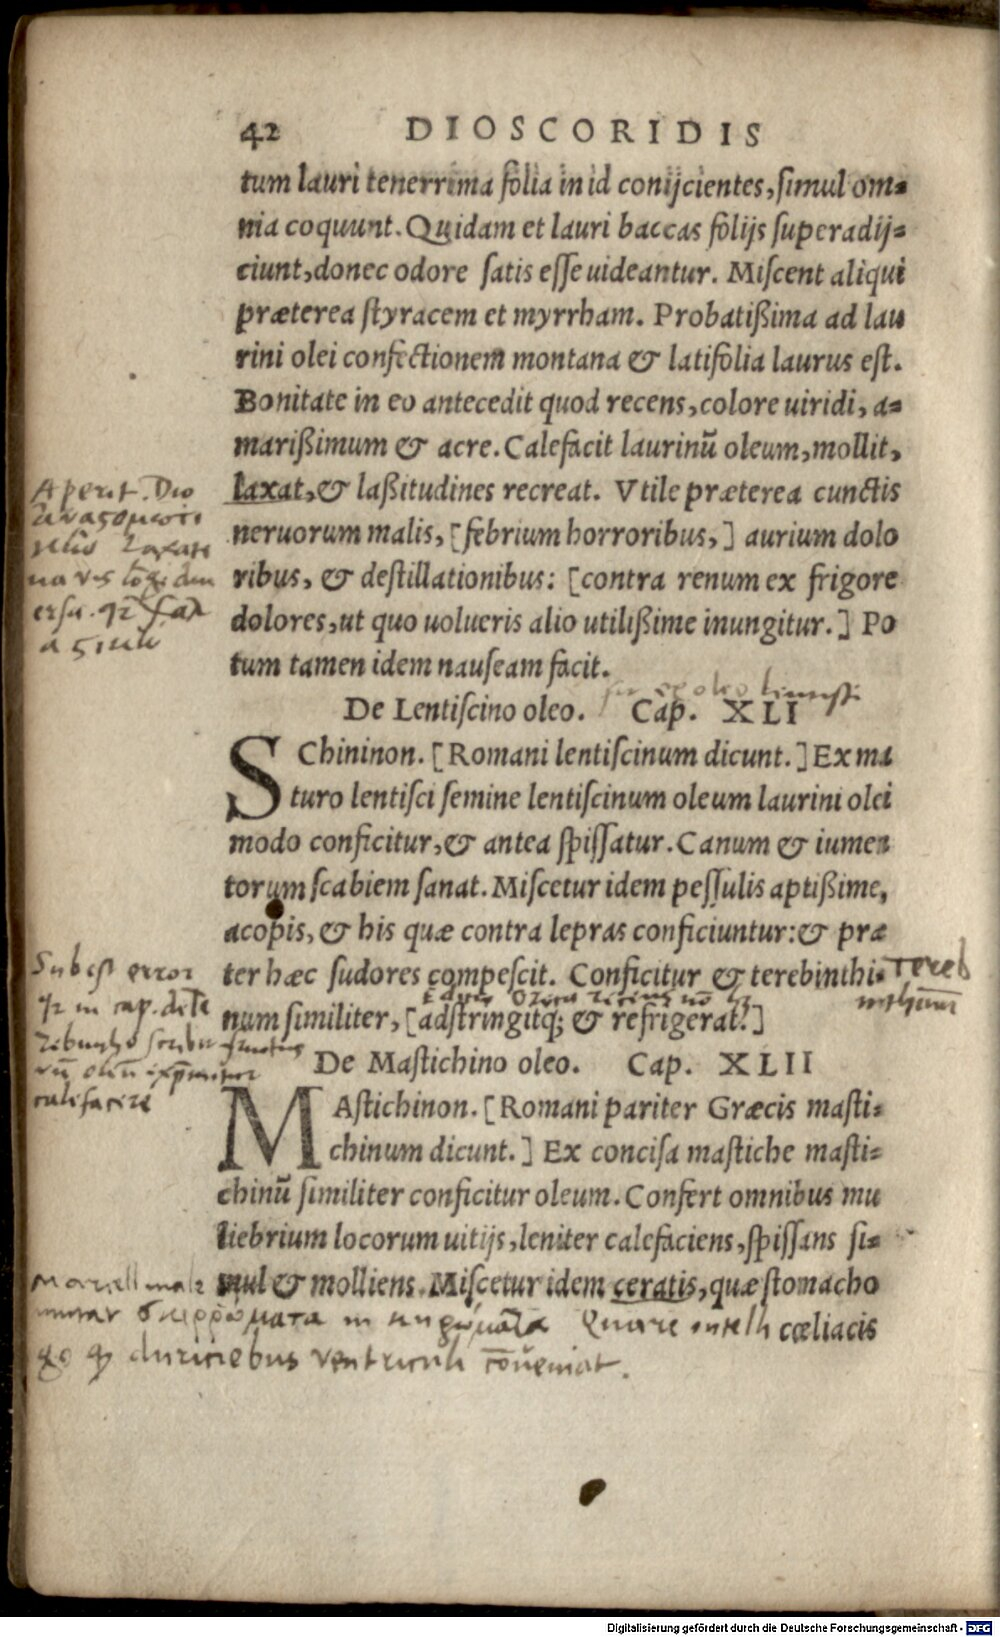 42 DIOSCORIDIS
tum lauri tenerrima folia in id conijcientes, simul om=
nia coquunt. Quidam et lauri baccas folijs superadij=
ciunt, donec odore satis esse uideantur. Miscent aliqui
præterea styracem et myrrham. Probatißima ad lau
rini olei confectionem montana & latifolia laurus est.
Bonitate in eo antecedit quod recens, colore uiridi, a=
marißimum & acre. Calefacit laurinū oleum, mollit,
laxat, & laßitudines recreat. Vtile præterea cunctis
neruorum malis, [febrium horroribus,] aurium dolo
ribus, & destillationibus: [contra renum ex frigore
dolores, ut quo uolueris alio utilißime inungitur.] Po
tum tamen idem nauseam facit.
Aperit. Dio
De Lentiscino oleo. Cap. XLI
SChininon. [Romani lentiscinum dicunt.] Ex ma
turo lentisci semine lentiscinum oleum laurini olei
modo conficitur, & antea spissatur. Canum & iumen
torum scabiem sanat. Miscetur idem pessulis aptißime,
acopis, & his quæ contra lepras conficiuntur: & præ
ter hæc sudores compescit. Conficitur & terebinthi=
num similiter, [adstringitq; & refrigerat.]
Tereb
inthinū
Sub est error
in cap. de te
rebintho
fructus
calefacere
De Mastichino oleo. Cap. XLII
MAstichinon. [Romani pariter Græcis masti=
chinum dicunt.] Ex concisa mastiche masti=
chinū similiter conficitur oleum. Confert omnibus mu
liebrium locorum uitijs, leniter calefaciens, spissans si=
mul & molliens. Miscetur idem ceratis, quæ stomacho
cœliacis
Marcell male
in Quare
duriciebus ventriculi cōueniat.
Digitalisierung gefördert durch die Deutsche Forschungsgemeinschaft - DFG